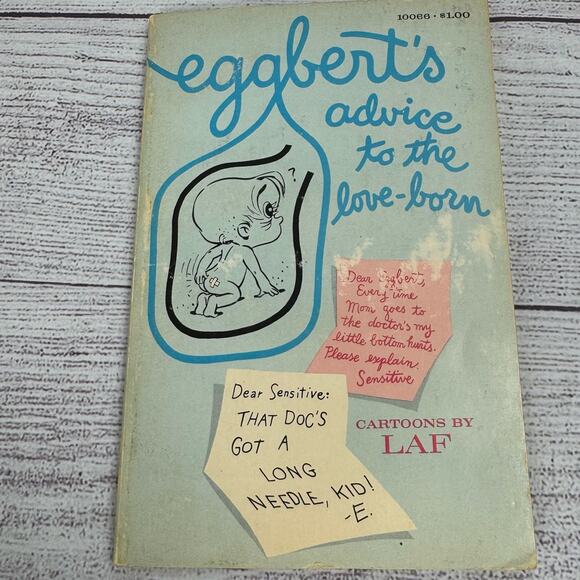 10066 · $1.00
eggbert's
advice
to the
love-born
?
Dear Eggbert,
Every time
Mom goes to
the doctor's my
little bottom hurts.
Please explain.
Sensitive
Dear Sensitive:
THAT DOC'S
GOT A
LONG
NEEDLE, KID!
-E.
CARTOONS BY
LAF